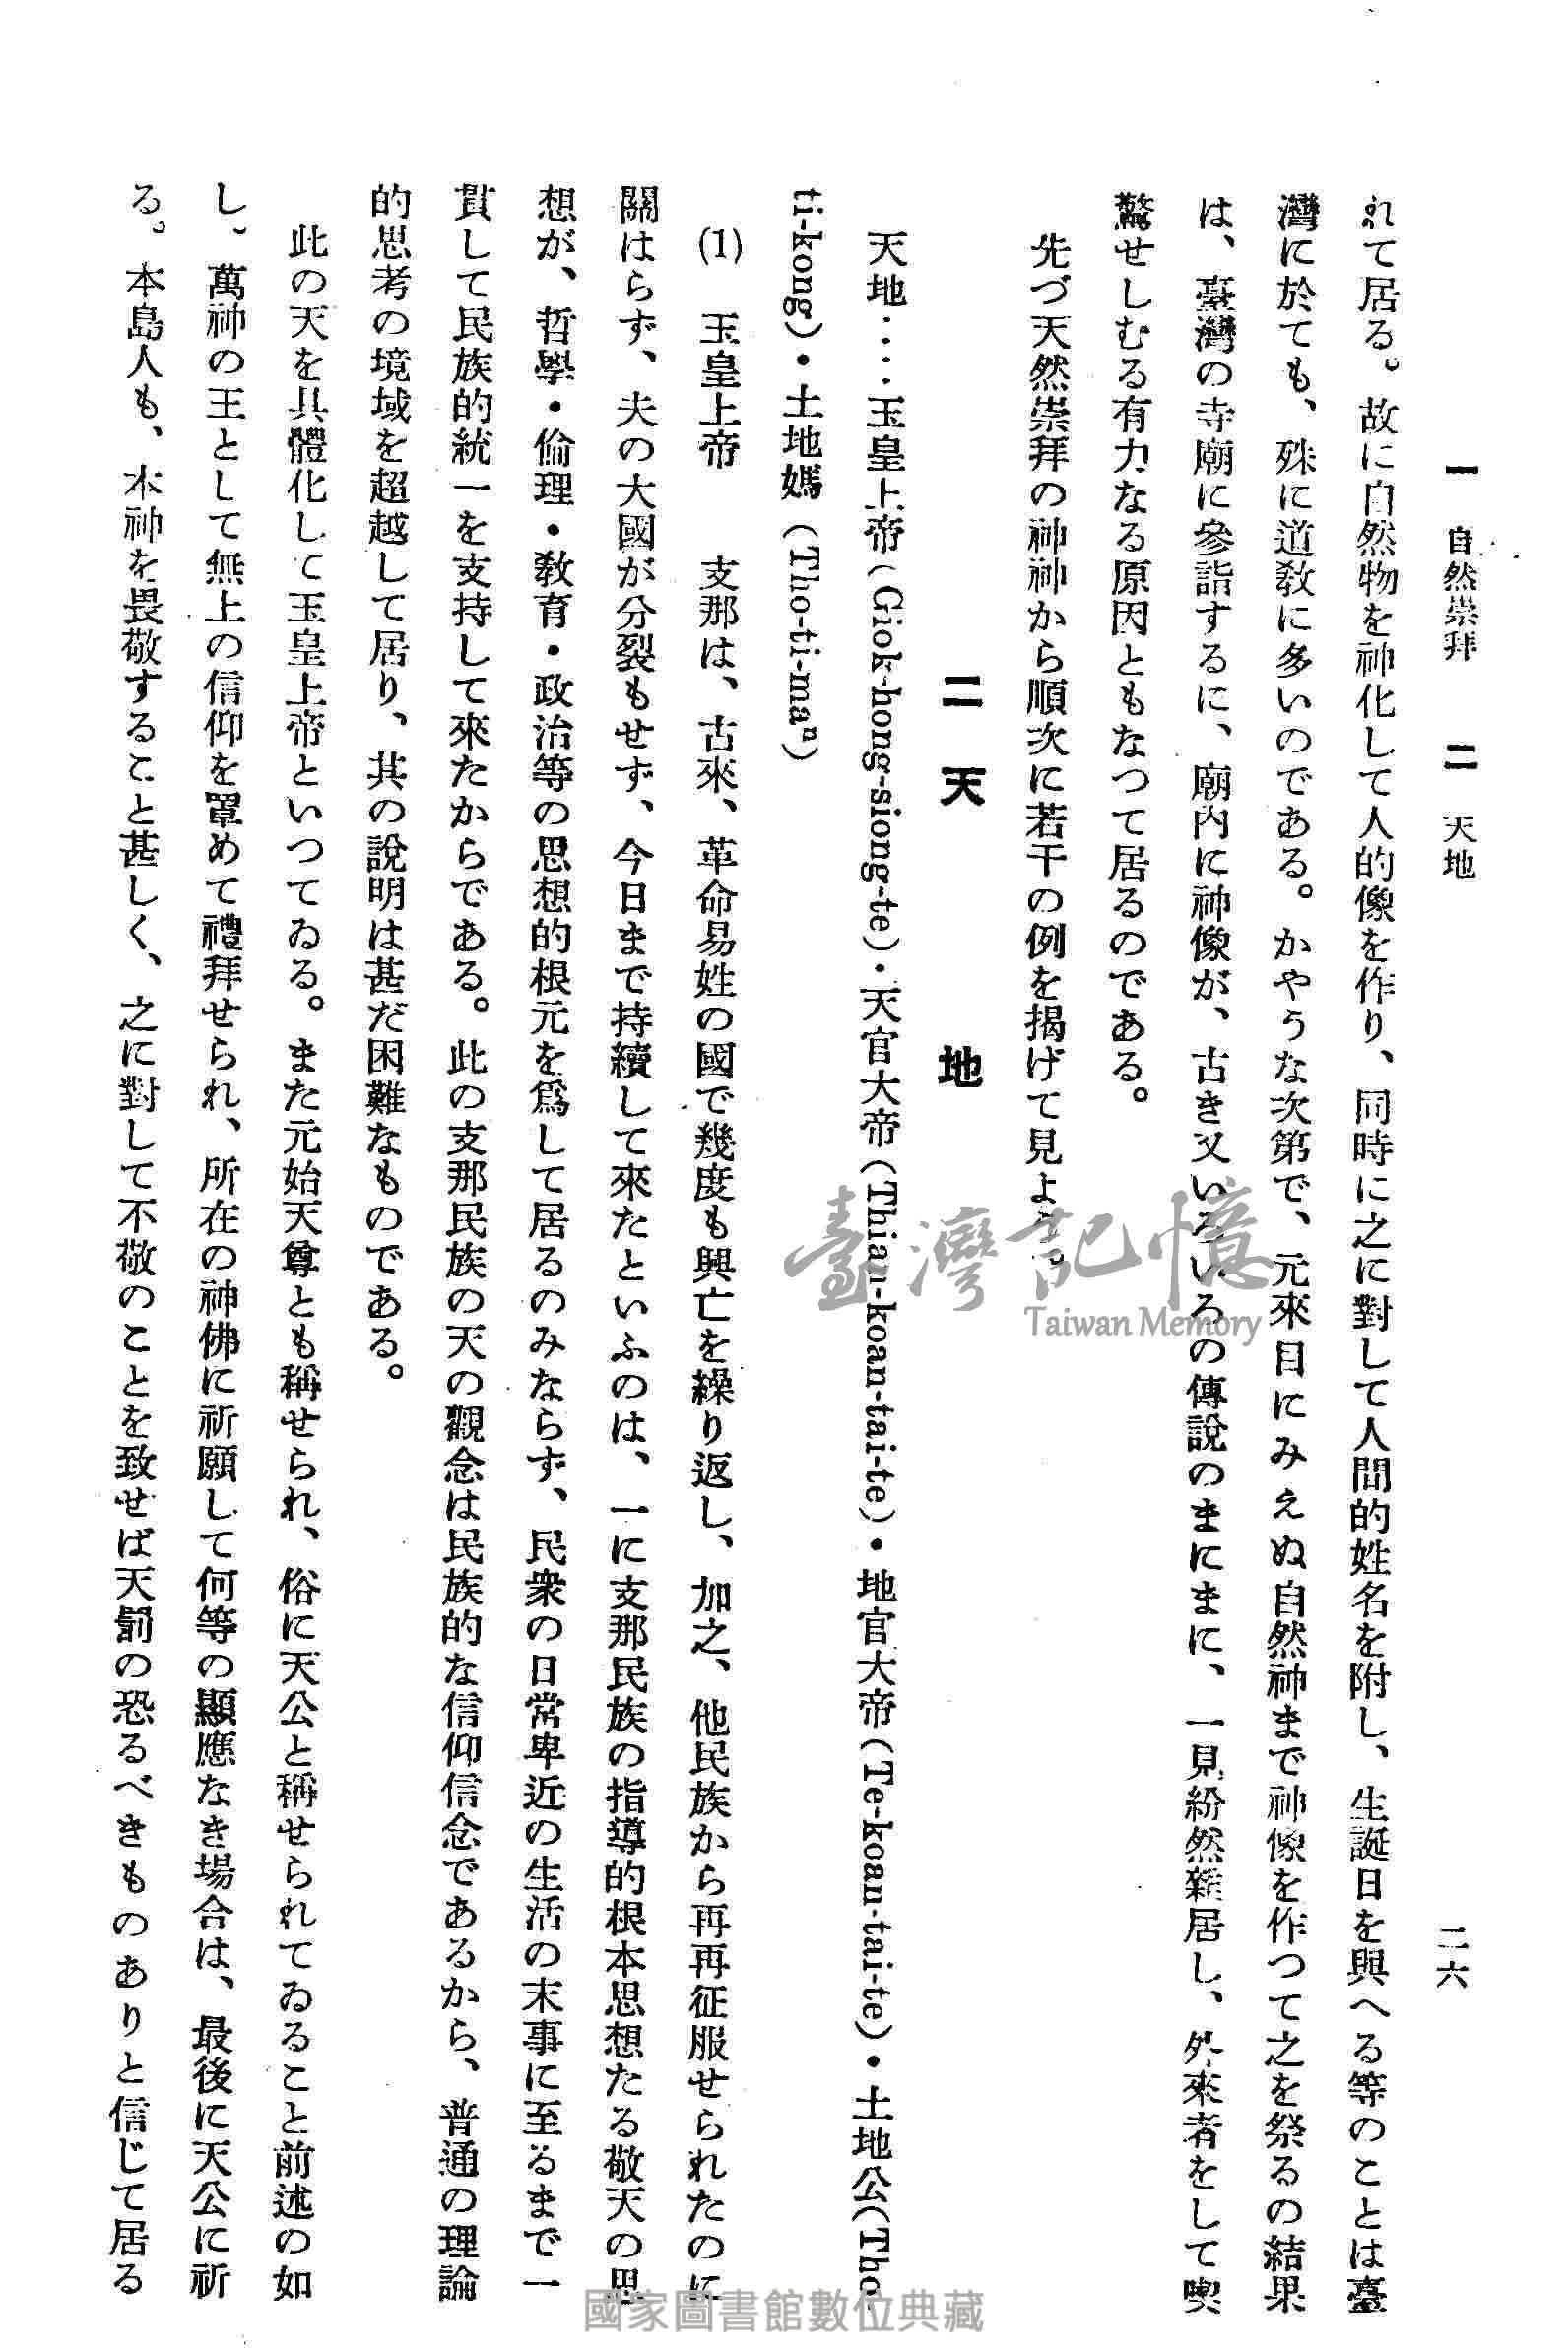 一 自然崇拜 二 天地 二六
れて居る。故に自然物を神化して人的像を作り、同時に之に對して人間的姓名を附し、生誕日を與へる等のことは臺
灣に於ても、殊に道敎に多いのである。かやうな次第で、元來目にみえぬ自然神まで神像を作つて之を祭るの結果
は、臺灣の寺廟に參詣するに、廟內に神像が、古き又いろいろの傳說のまにまに、一見紛然雜居し、外來者をして喫
驚せしむる有力なる原因ともなつて居るのである。
先づ天然崇拜の神神から順次に若干の例を揭げて見よう。
二 天地
天地‥‥玉皇上帝(Giok-hong-siong-te)・天官大帝(Thian-koan-tai-te)・地官大帝(Te-koan-tai-te)・土地公(Tho-
ti-kong)・土地媽(Tho-ti-maⁿ)
(1) 玉皇上帝 支那は、古來、革命易姓の國で幾度も興亡を繰り返し、加之、他民族から再再征服せられたのに
關はらず、夫の大國が分裂もせず、今日まで持續して來たといふのは、一に支那民族の指導的根本思想たる敬天の思
想が、哲學・倫理・敎育・政治等の思想的根元を爲して居るのみならず、民衆の日常卑近の生活の末事に至るまで一
貫して民族的統一を支持して來たからである。此の支那民族の天の觀念は民族的な信仰信念であるから、普通の理論
的思考の境域を超越して居り、其の說明は甚だ困難なものである。
此の天を具體化して玉皇上帝といつてゐる。また元始天尊とも稱せられ、俗に天公と稱せられてゐること前述の如
し。萬神の王として無上の信仰を罩めて禮拜せられ、所在の神佛に祈願して何等の顯應なき場合は、最後に天公に祈
る。本島人も、本神を畏敬すること甚しく、之に對して不敬のことを致せば天罰の恐るべきものありと信じて居る
臺灣記憶
Taiwan Memory
國家圖書館數位典藏